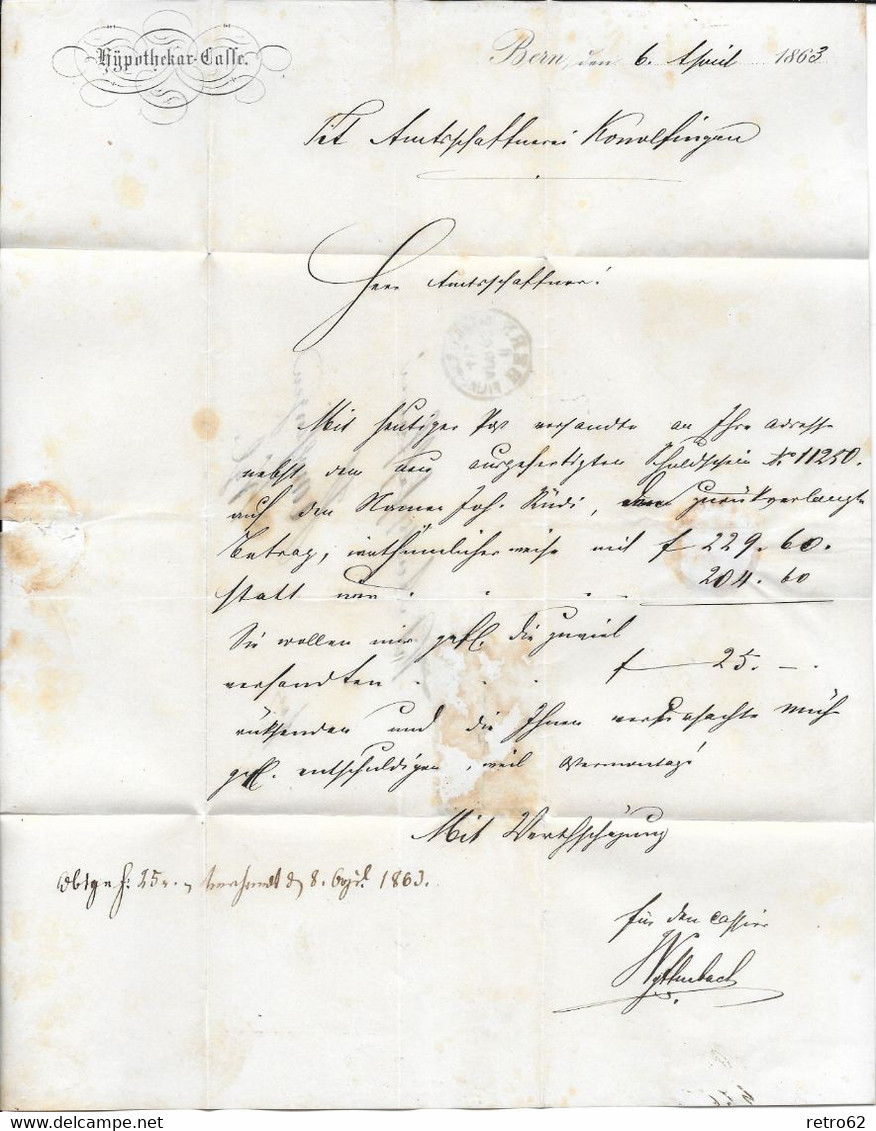 Hÿpothekar-Casse.
Bern, den 6. April 1863
Tit Amtsschaffnerei Konolfingen
Herr Amtsschaffner!
Mit heutiger Post versandte an Ihre Adresse
nebst dem neu ausgefertigten Schuldschein No 11250.
auf den Namen Joh. Rüdi, zurükverlangte
Betrag, irrthümlicherweise mit f 229. 60.
statt nur . . . 204. 60
Sie wollen mir gefl. die zuviel
versandten . . . f 25. —.
rüksenden und die Ihnen verursachte Müh
gefl. entschuldigen,
Mit Werthschäzung
Obige f: 25.- versandt d 8. April 1863.
für den Cassier
Wyttenbach
delcampe.net
retro62